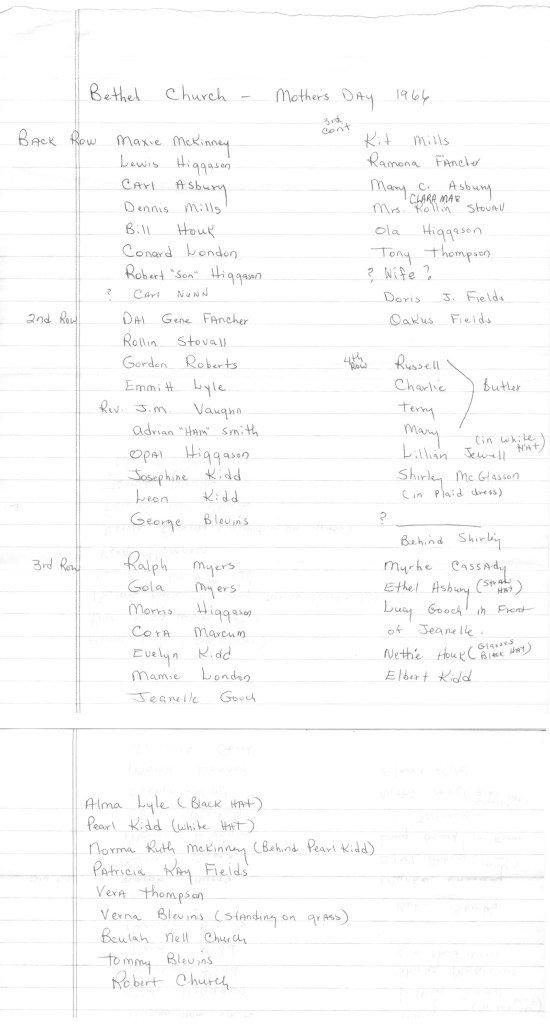 Bethel Church - Mother's Day 1966
Back Row Maxie McKinney
Lewis Higgason
Carl Asbury
Dennis Mills
Bill Houk
Conard London
Robert "Son" Higgason
? Carl Nunn
2nd Row Dal Gene Fancher
Rollin Stovall
Gordon Roberts
Emmitt Lyle
Rev. J.M. Vaughn
Adrian "Ham" Smith
Opal Higgason
Josephine Kidd
Leon Kidd
George Blevins
3rd Row Ralph Myers
Gola Myers
Morris Higgason
Cora Marcum
Evelyn Kidd
Mamie London
Jeanelle Gooch
3rd cont
Kit Mills
Ramona Fancher
Mary C. Asbury
Clara Mae
Mrs. Rollin Stovall
Ola Higgason
Tony Thompson
? Wife ?
Doris J. Fields
Oakus Fields
4th Row Russell
Charlie Butler
Terry
Mary
Lillian Jewell (in white hat)
Shirley McGlasson
(in plaid dress)
?
Behind Shirley
Myrhe Cassady
Ethel Asbury (straw hat)
Lucy Gooch in front
of Jeanelle.
Nettie Houk (Glasses Black Hat)
Elbert Kidd
Alma Lyle (Black Hat)
Pearl Kidd (white Hat)
Norma Ruth McKinney (Behind Pearl Kidd)
Patricia Kay Fields
Vera Thompson
Verna Blevins (standing on grass)
Beulah Nell Church
Tommy Blevins
Robert Church